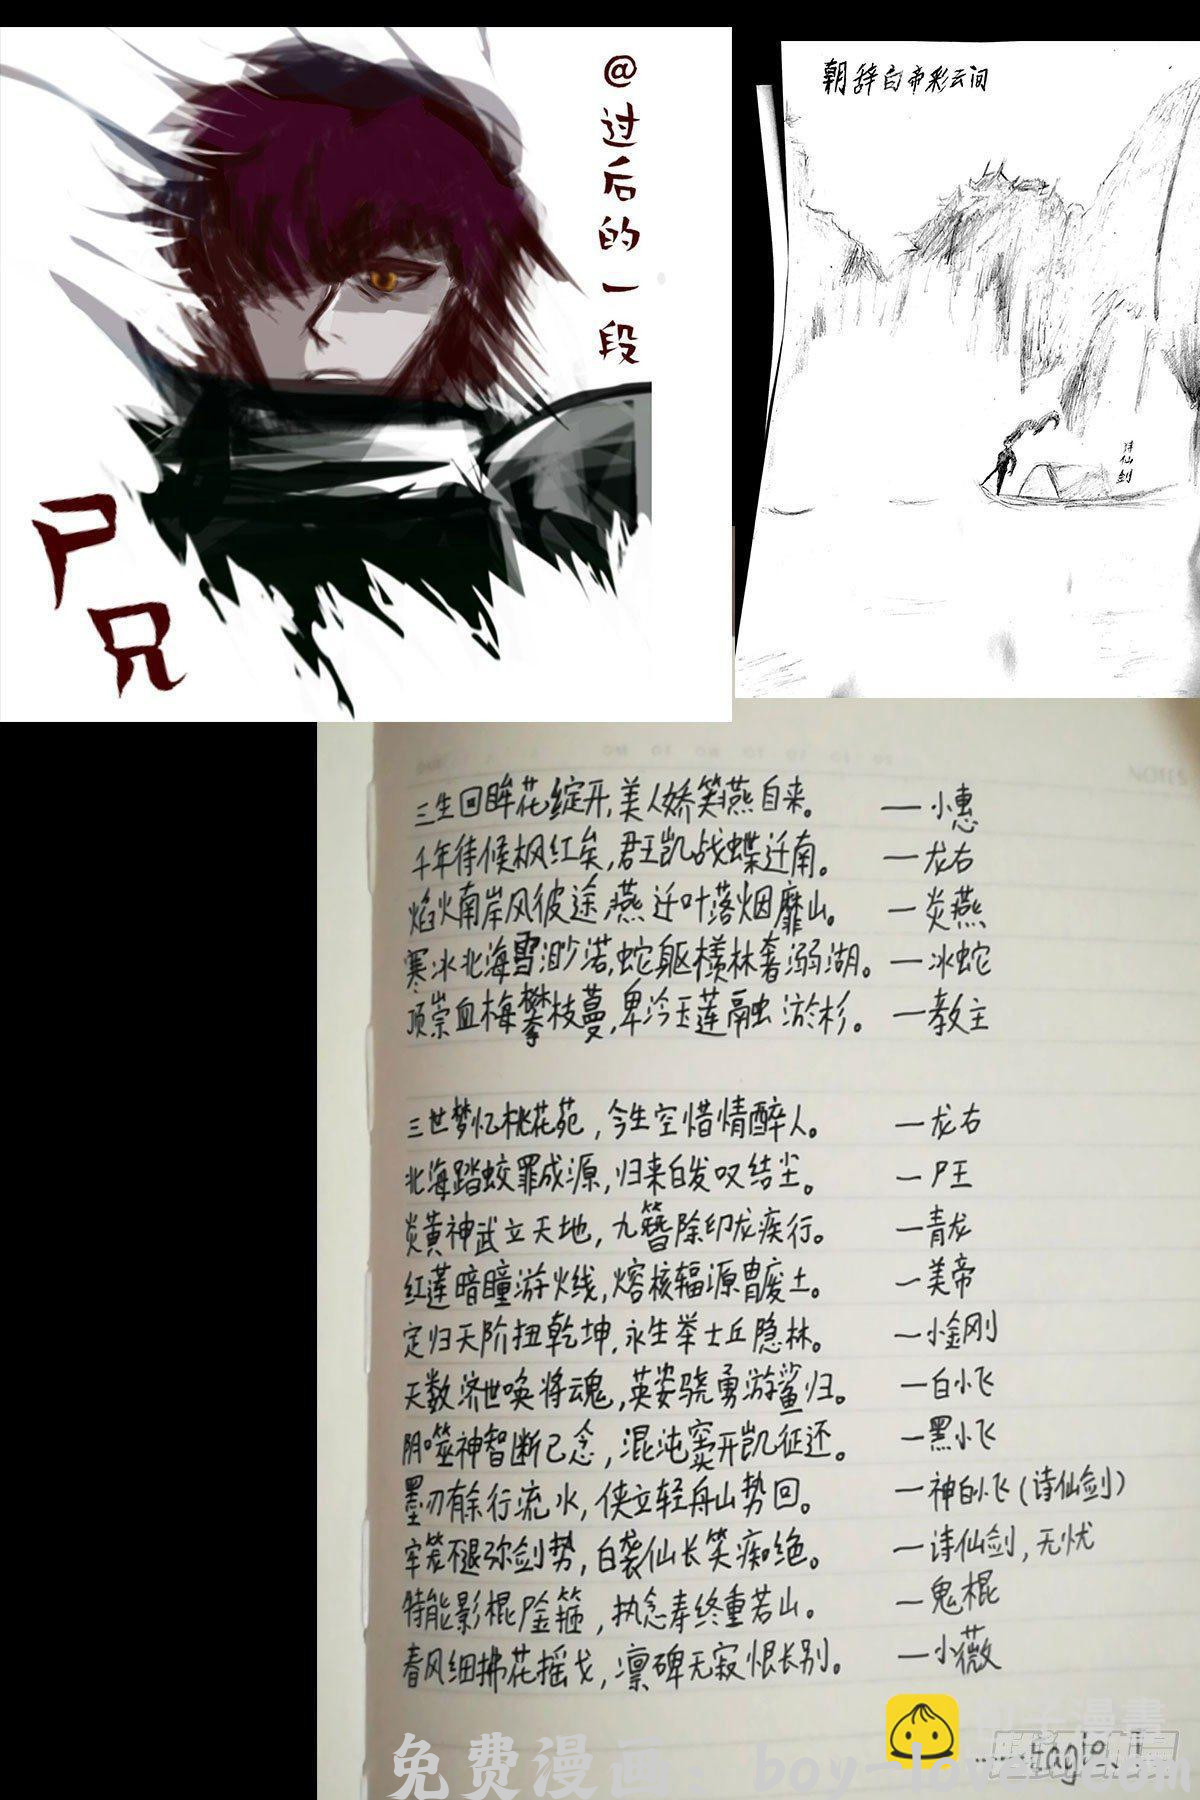 @过后的一段
尸兄
朝辞白帝彩云间
诗仙剑
三生回眸花绽开,美人娇笑燕自来。 —小惠
千年待候枫红矣,君王凯战蝶迁南。 —龙右
焰火南岸风彼途,燕迁叶落烟靡山。 —炎燕
寒冰北海雪渺茫,蛇躯横林奢溺湖。 —冰蛇
顶崇血梅攀枝蔓,卑冷玉莲融淤杉。 —教主
三世梦忆桃花苑,今生空惜情醉人。 —龙右
北海踏蛟罪成源,归来白发叹结尘。 —尸王
炎黄神武立天地,九簪除印龙疾行。 —青龙
红莲暗瞳游火线,熔核辐源冒废土。 —美帝
定归天阶扭乾坤,永生举士丘隐林。 —小金刚
天数济世唤将魂,英姿骁勇游鲨归。 —白小飞
阴噬神智断己念,混沌窦开凯征还。 —黑小飞
墨刃有余行流水,侠立轻舟山势回。 —神白小飞(诗仙剑)
牢笼不退弥剑势,白袭仙长笑痴绝。 —诗仙剑,无忧
特能影棍尸金箍,执念寿终重若山。 —鬼棍
春风细拂花摇戈,凛碑无寂恨长别。 —小薇
免费漫画 boy-love